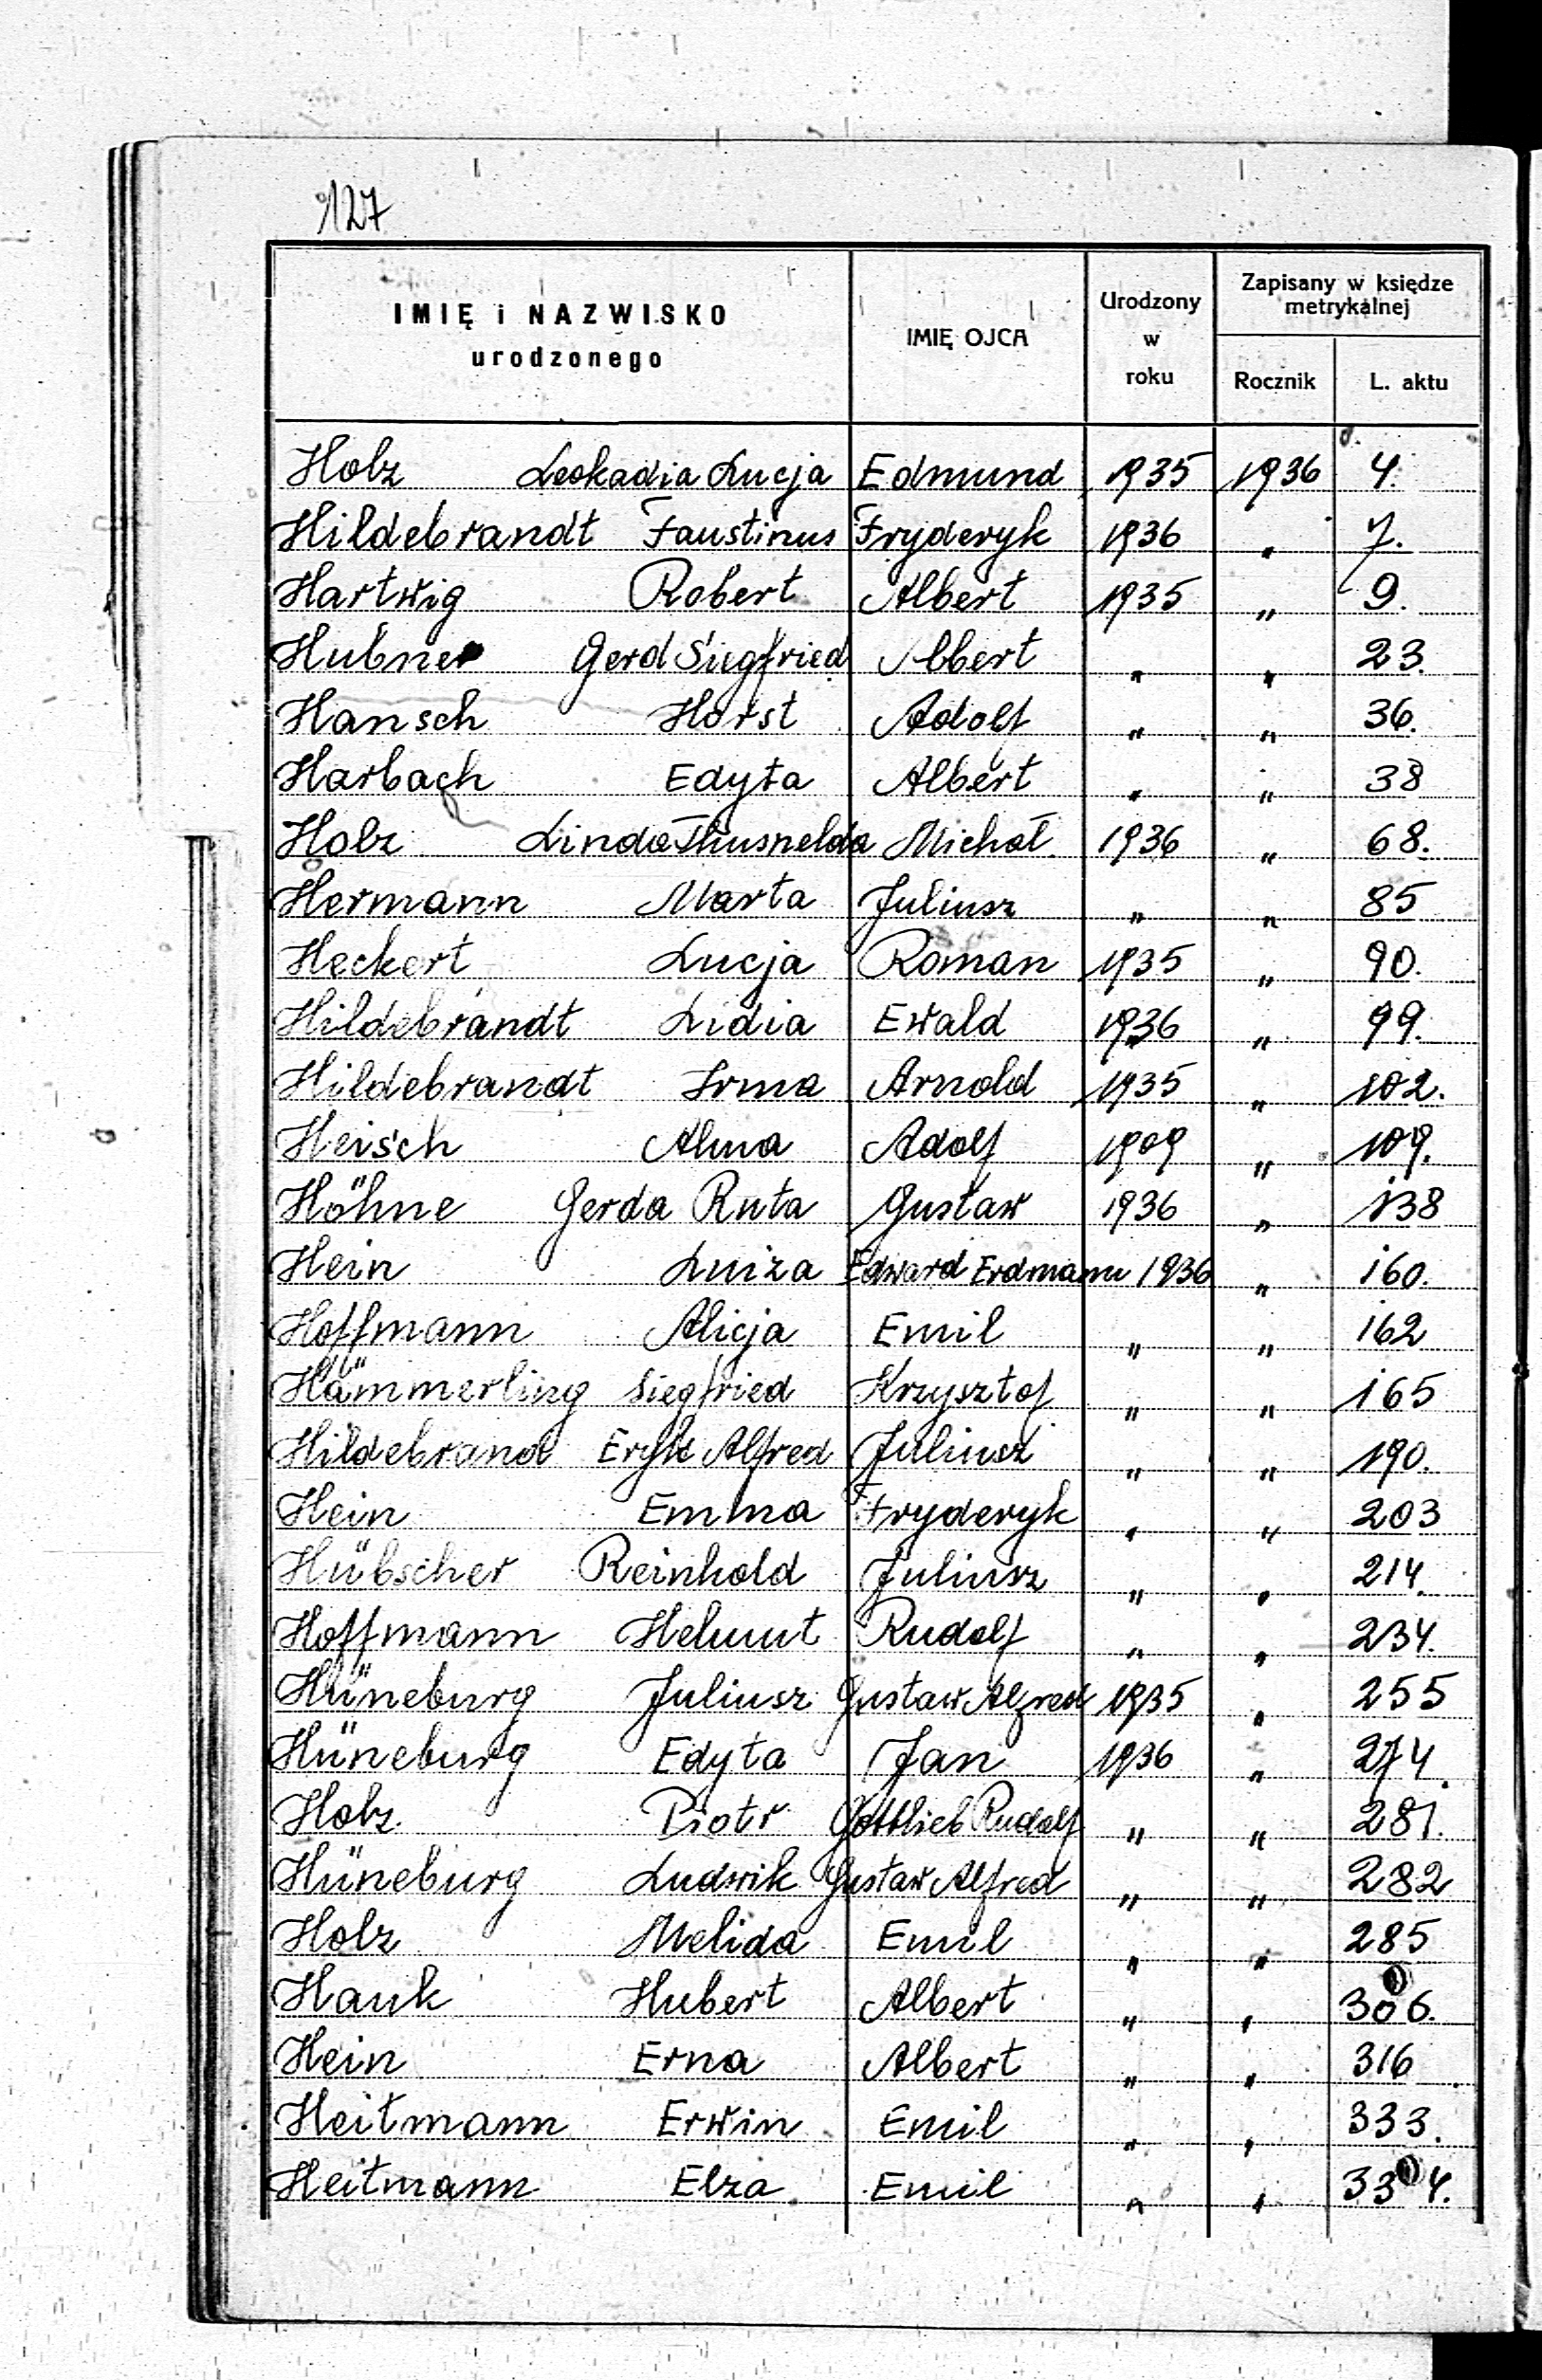 127
IMIĘ i NAZWISKO
urodzonego
IMIĘ OJCA
Urodzony
w
roku
Zapisany w księdze
metrykalnej
Rocznik
L. aktu
Holz Leokadia Lucja Edmund 1935 1936 4.
Hildebrandt Faustinus Fryderyk 1936 " 7.
Hartwig Robert Albert 1935 " 9.
Hubner Gerd Siegfried Albert " " 23.
Hansch Horst Adolf " " 36.
Harbach Edyta Albert " " 38
Holz Linda Thusnelda Michał 1936 " 68.
Hermann Marta Juliusz " " 85
Heckert Lucja Roman 1935 " 90.
Hildebrandt Lidia Ewald 1936 " 99.
Hildebrandt Irma Arnold 1935 " 102.
Heisch Alma Adolf 1909 " 109.
Höhne Gerda Ruta Gustaw 1936 " 138
Hein Luiza Edward Erdmann 1936 " 160.
Hoffmann Alicja Emil " " 162
Hämmerling Siegfried Krzysztof " " 165
Hildebrand Eryk Alfred Juliusz " " 190.
Hein Emma Fryderyk " " 203
Hübscher Reinhold Juliusz " " 214.
Hoffmann Helmut Rudolf " " 234.
Hüneburg Juliusz Gustaw Alfred 1935 " 255
Hüneburg Edyta Jan 1936 " 274.
Holz Piotr Gottlieb Rudolf " " 281.
Hüneburg Ludwik Gustaw Alfred " " 282
Holz Melida Emil " " 285
Hauk Hubert Albert " " 306.
Hein Erna Albert " " 316
Heitmann Erwin Emil " " 333.
Heitmann Elza Emil " " 334.